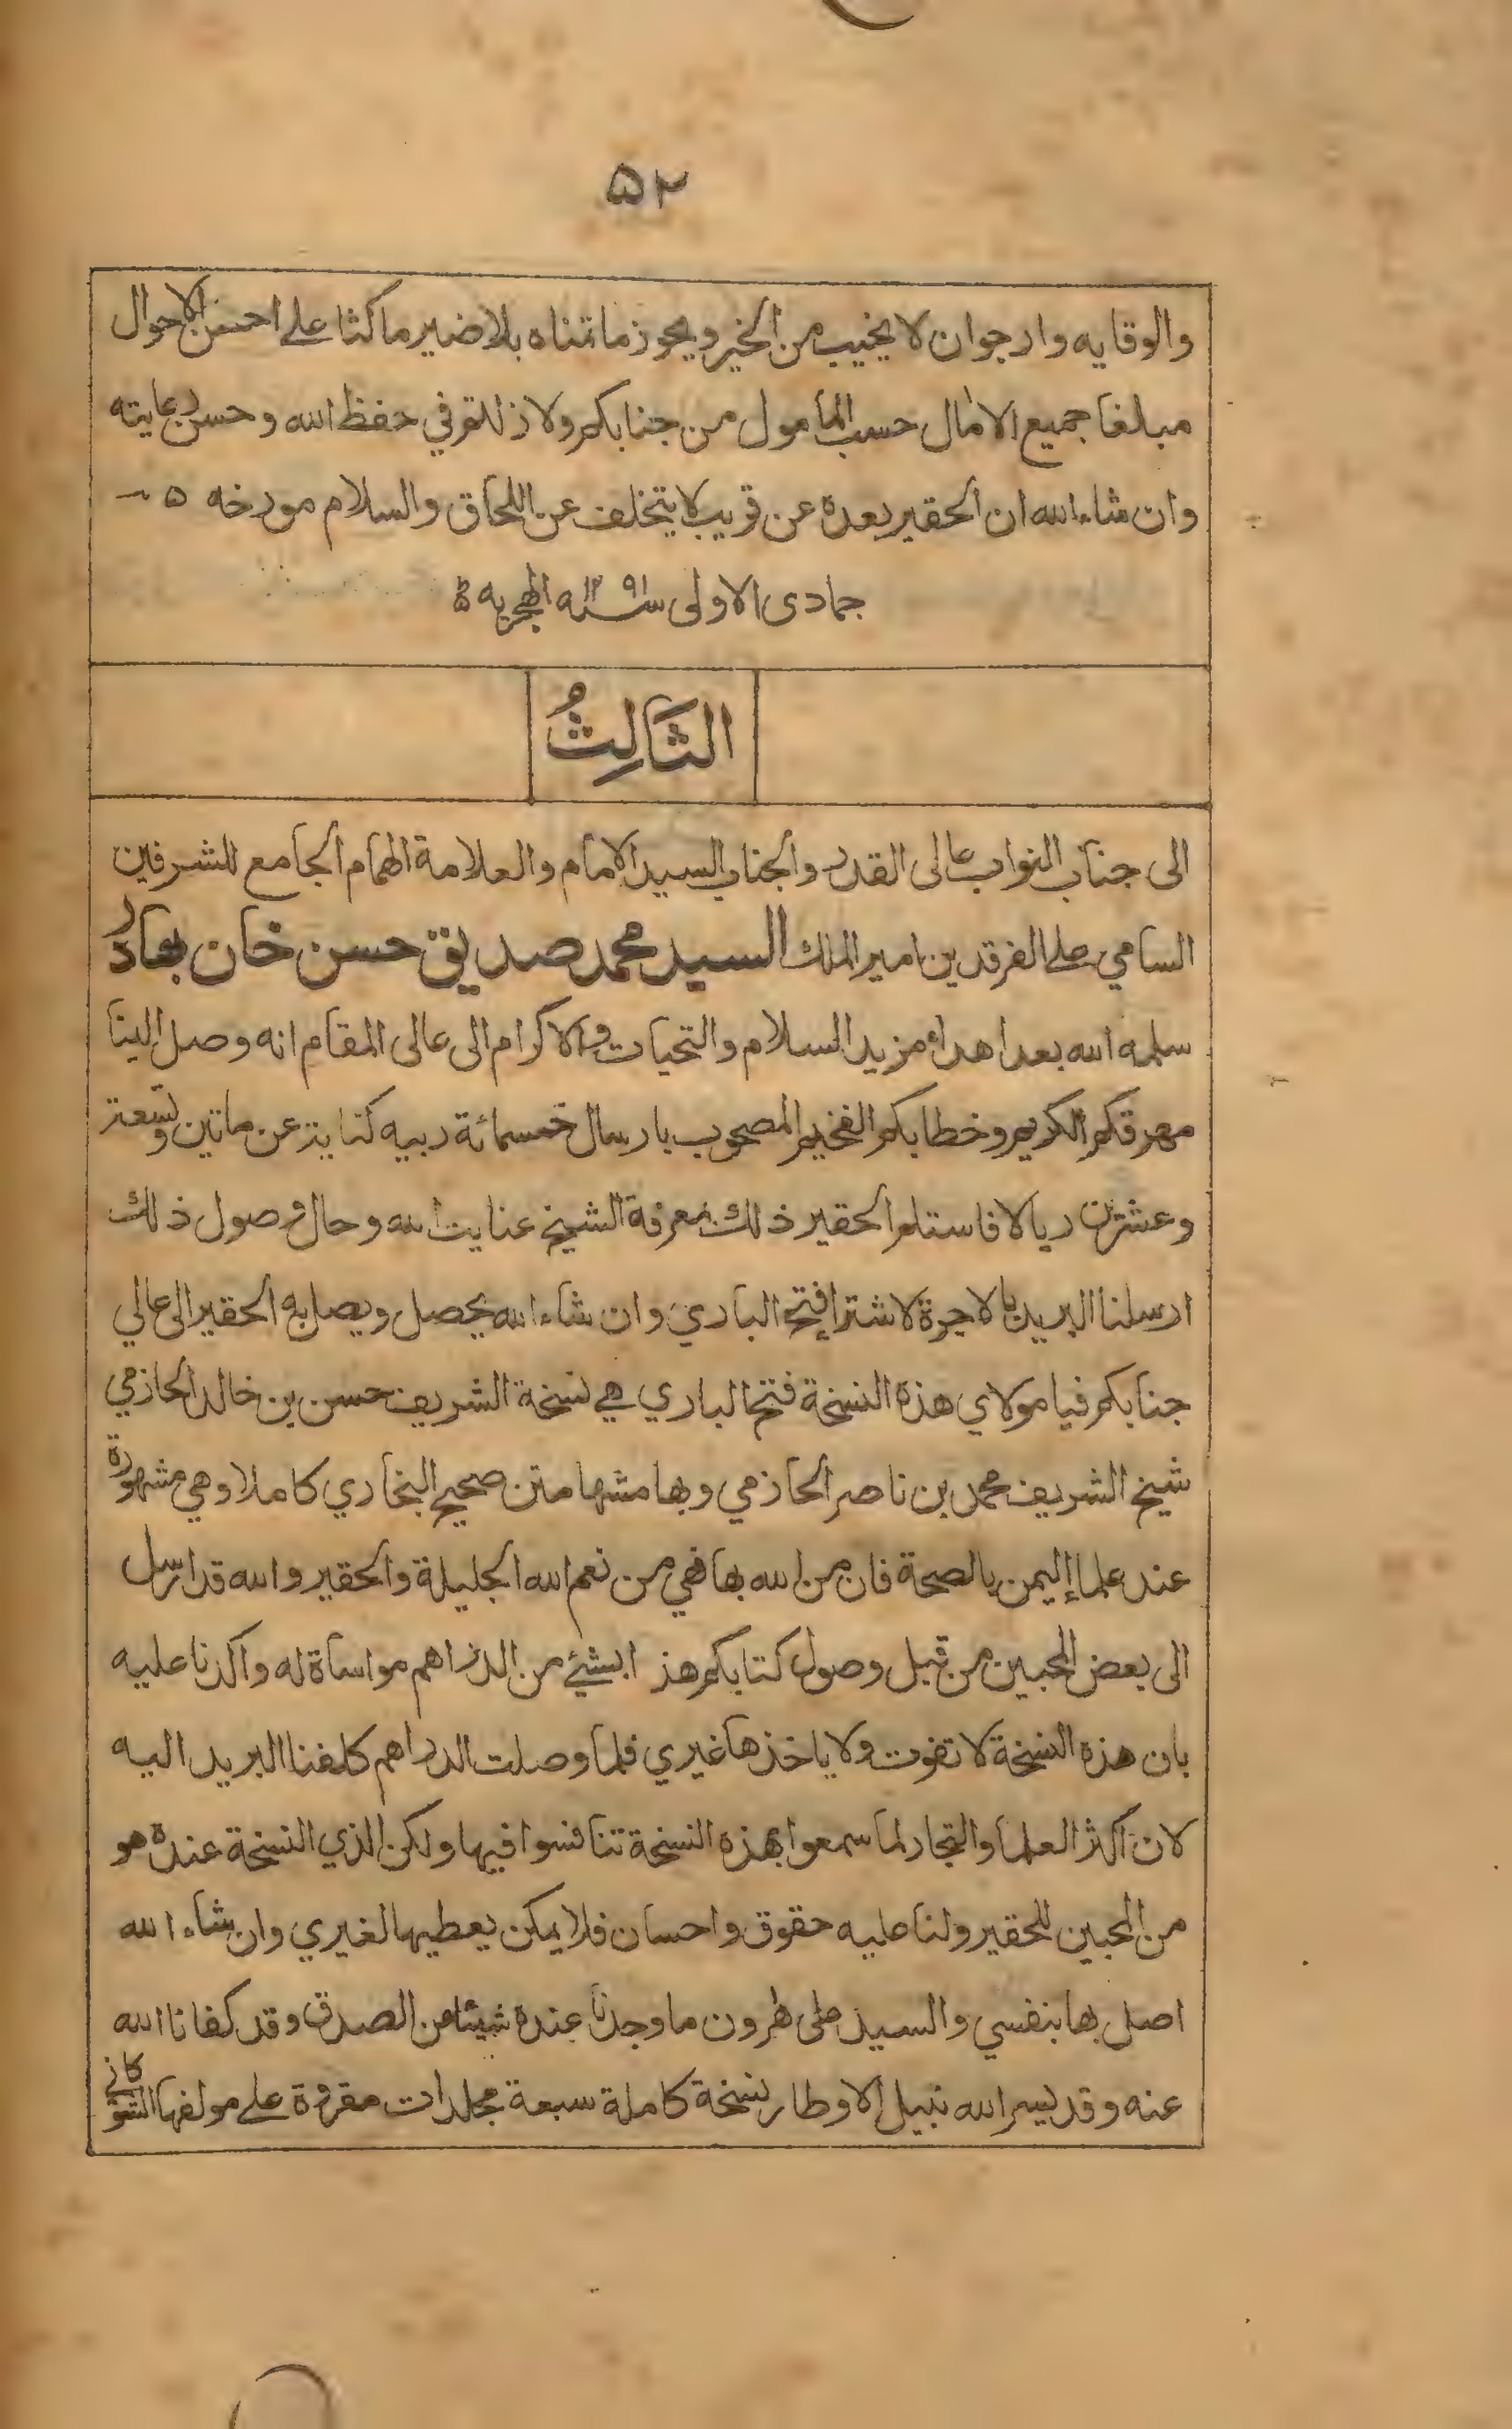 ٥٢
والوقايه وارجوان لا يخيب من الخير ويحوز ماتمناه بلاضير ماكثا على احسن الاحوال
مبلغا جميع الامال حسب المأمول من جنابكم ولا زلتم في حفظ الله وحسن رعايته
وان شاء الله ان الحقير بعده عن قريب لا يتخلف عن اللحاق والسلام مورخه ٥
جمادى الاولى سنه ١٢٩١ الهجريه
الثَالِثُ
الى جناب النواب عالى القدر والجناب السيد الامام والعلامة الهمام الجامع للشرفين
السامي على الفرقدين امير الملك السيد محمد صديق حسن خان بهادر
سلمه الله بعد اهداء مزيد السلام والتحيات والاكرام الى عالى المقام انه وصل الينا
مهرقكم الكريم وخطابكم الفخيم المصحوب بارسال خمسمائة ربيه كناية عن ماتين وتسعة
وعشرين ريالا فاستلم الحقير ذلك بمعرفة الشيخ عنايت الله وحال وصول ذلك
ارسلنا البريد بالاجرة لاشتراء فتح الباري وان شاء الله يحصل ويصل به الحقير الى عالي
جنابكم فيا مولاي هذه النسخة فتح الباري هي نسخة الشريف حسن بن خالد الحازمي
شيخ الشريف محمد بن ناصر الحازمي وبهامشها متن صحيح البخاري كاملا وهي مشهورة
عند علماء اليمن بالصحة فان من الله بها فهي من نعم الله الجليلة والحقير والله قد ارسل
الى بعض المحبين من قبل وصول كتابكم هذا بشئ من الدراهم مواساة له واكدنا عليه
بان هذه النسخة لا تفوت ولا ياخذها غيري فلما وصلت الدراهم كلفنا البريد اليه
لان اكثر العلما والتجار لما سمعوا بهذه النسخة تنافسوا فيها ولكن الذي النسخة عنده هو
من المحبين للحقير ولنا عليه حقوق واحسان فلا يمكن يعطيها لغيري وان شاء الله
اصل بها بنفسي والسيد على ما وجدنا عنده شيئا من الصدق وقد كفانا الله
عنه وقد يسر الله نيل الاوطار نسخة كاملة سبعة مجلدات مقروة على مولفها الشوكاني